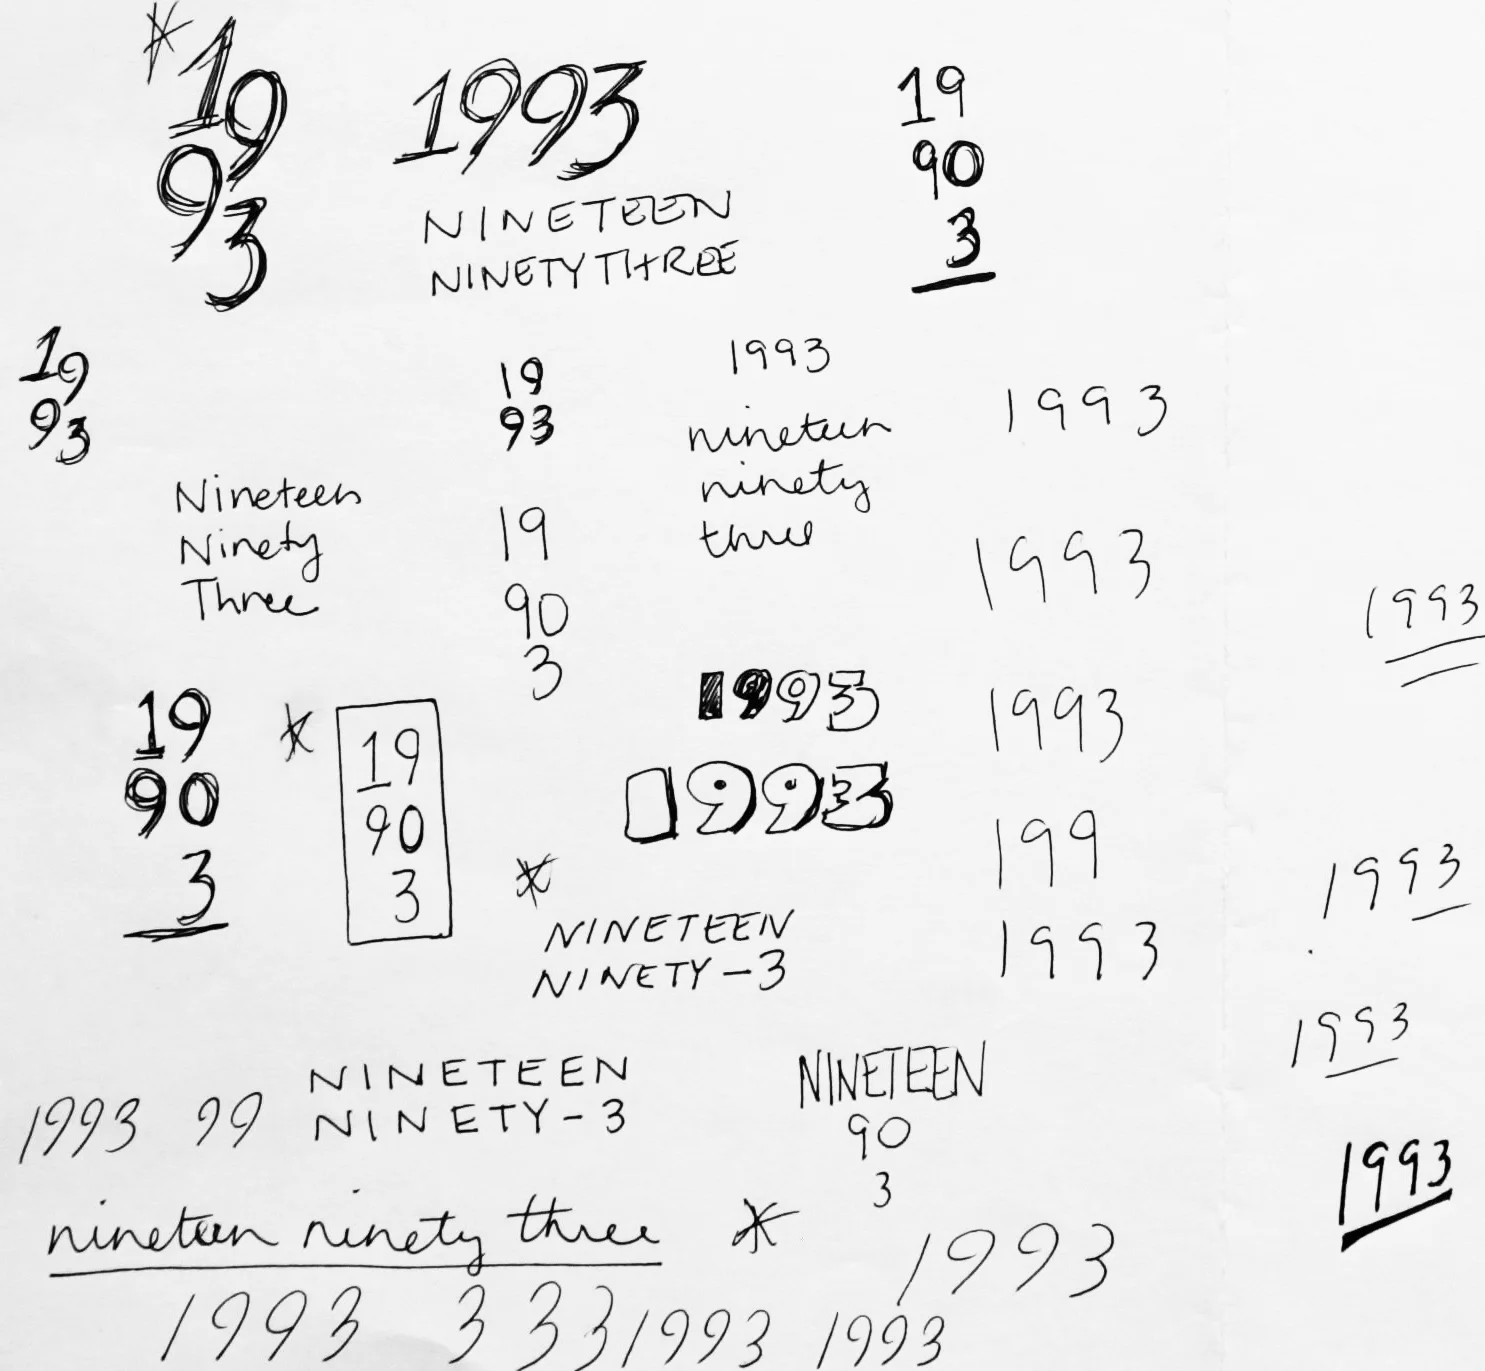 *19
93
1993
NINETEEN
NINETY THREE
19
90
3
19
93
19
93
1993
nineteen
ninety
three
1993
Nineteen
Ninety
Three
19
90
3
1993
1993
19
90
3
*
19
90
3
1993
1993
1993
199
1993
1993
*
NINETEEN
NINETY-3
1993
1993 99
NINETEEN
NINETY-3
NINETEEN
90
3
1993
nineteen ninety three *
1993
1993 3 3 3 1993 1993